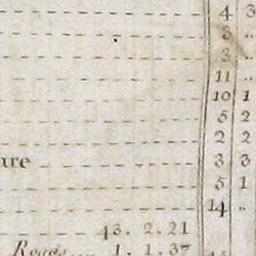 4 3
3 ..
3 ..
11 ..
10 1
5 2
2 2
ure 3 3
5 1
14 ..
43. 2. 21
Roads 1. 1. 37